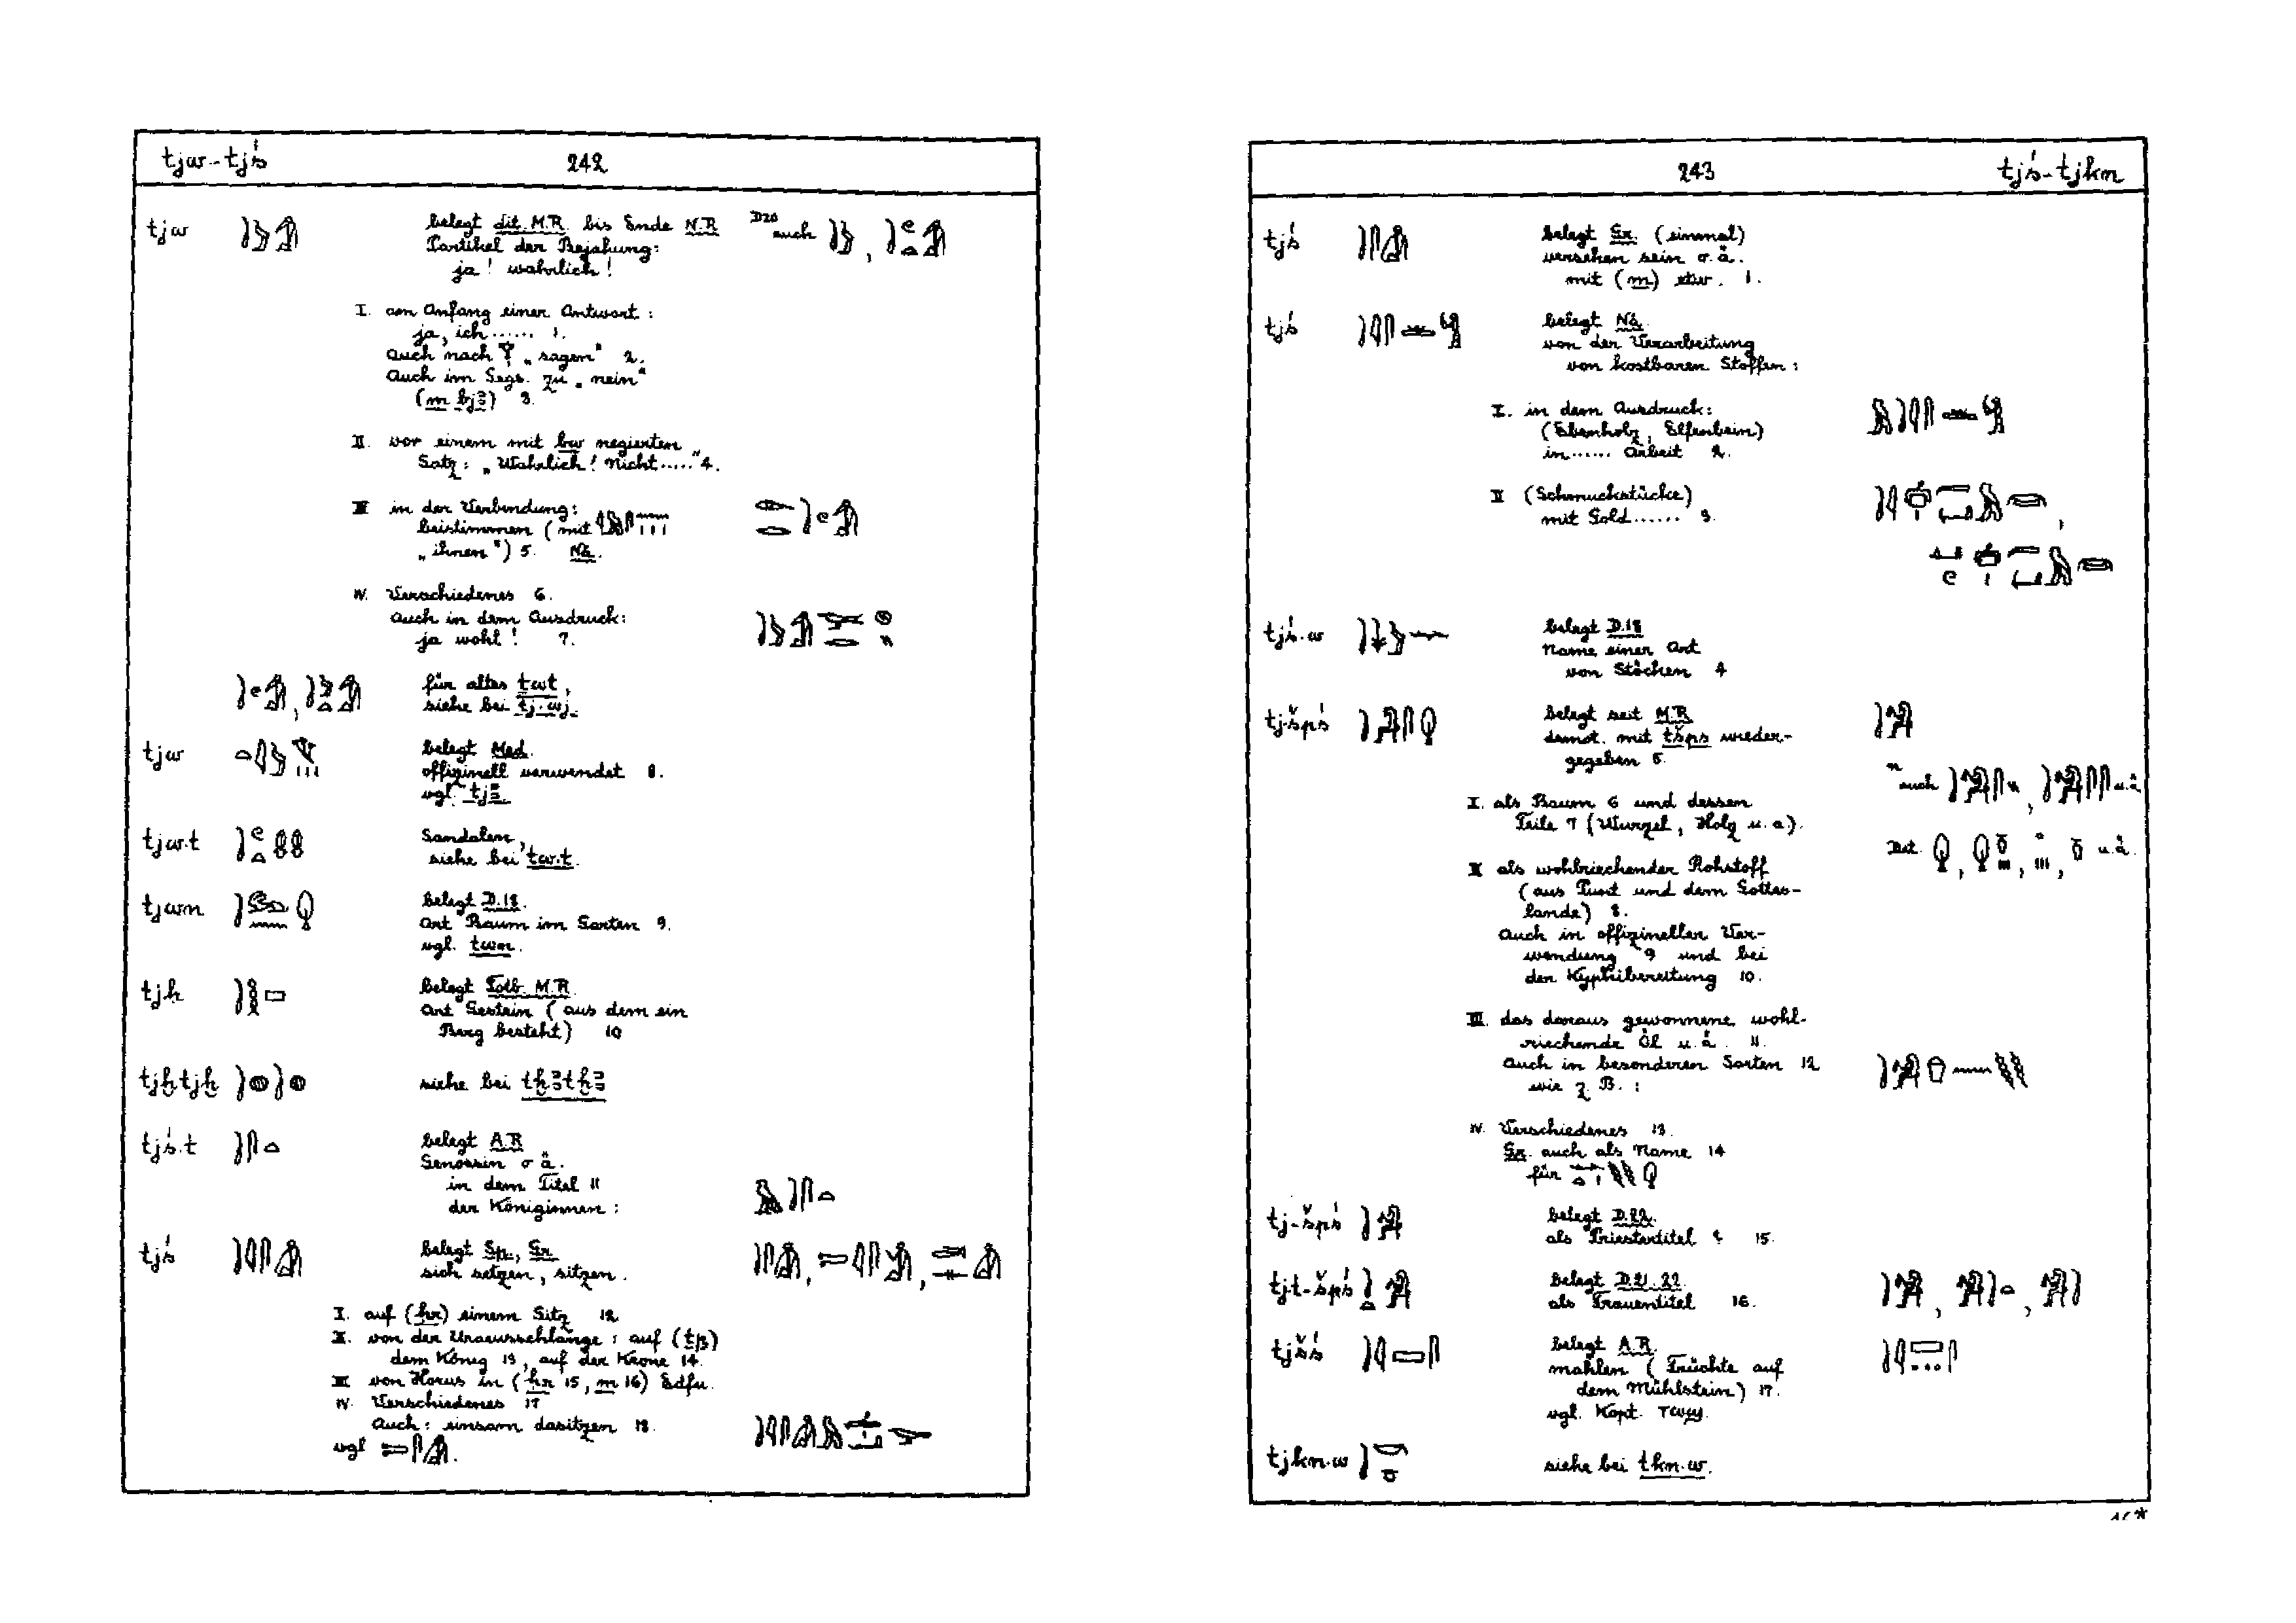 tjw - tjś 242
tjw
belegt dit. M.R. bis Ende N.R
D20 auch
Partikel der Bejahung:
ja! wahrlich!
I. am Anfang einer Antwort:
ja, ich ...... 1.
Auch nach „sagen“ 2.
Auch im Gegs. zu „nein“
(m bjꜣ) 3.
II. vor einem mit bw negierten
Satz: „Wahrlich! nicht .....“ 4.
III in der Verbindung:
beistimmen (mit
„ihnen“) 5. Nä.
IV. Verschiedenes 6.
Auch in dem Ausdruck:
ja wohl! 7.
für altes twt,
siehe bei tj.wj.
tjw
belegt Med.
offizinell verwendet 8.
vgl. tjꜣ
tjw.t
Sandalen,
siehe bei tw.t.
tjwn
belegt D.18.
Art Baum im Garten 9.
vgl. twn.
tjḥ
belegt Totb. M.R.
Art Gestein (aus dem ein
Berg besteht) 10
tjḫtjḫ siehe bei tḫꜣtḫꜣ
tjś.t
belegt A.R
Genossin o ä.
in dem Titel 11
der Königinnen:
tjś
belegt Sp., Gr.
sich setzen, sitzen.
I. auf (ḥr) einem Sitz 12
II. von der Uraeusschlange: auf (tp)
dem König 13, auf der Krone 14.
III von Horus in (ḥr 15, m 16) Edfu.
IV. Verschiedenes 17
Auch: einsam dasitzen 18.
vgl
243 tjś - tjkn
tjś
belegt Gr. (einmal)
versehen sein o.ä.
mit (m) etw. 1.
tjś
belegt Nä.
von der Verarbeitung
von kostbaren Stoffen:
I. in dem Ausdruck:
(Ebenholz, Elfenbein)
in ...... Arbeit 2.
II (Schmuckstücke)
mit Gold ...... 3.
tjś.w
belegt D.18
Name einer Art
von Stöcken 4
tj-špś
belegt seit M.R.
demot. mit tšps wieder-
gegeben 5.
auch u.ä
I. als Baum 6 und dessen
Teile 7 (Wurzel, Holz u.a.).
Det. u.ä.
II als wohlriechender Rohstoff
(aus Punt und dem Gottes-
lande) 8.
Auch in offizineller Ver-
wendung 9 und bei
der Kyphibereitung 10.
III. das daraus gewonnene wohl-
riechende Öl u.ä. 11.
Auch in besonderen Sorten 12
wie z.B.:
IV. Verschiedenes 13.
Gr. auch als Name 14
für
tj-špś
belegt D.22.
als Priestertitel ? 15.
tjt-špś
belegt D.21. 22.
als Frauentitel 16.
tjšś
belegt A.R.
mahlen (Früchte auf
dem Mühlstein) 17.
vgl. Kopt.
tjkn.w siehe bei tkn.w.
16*